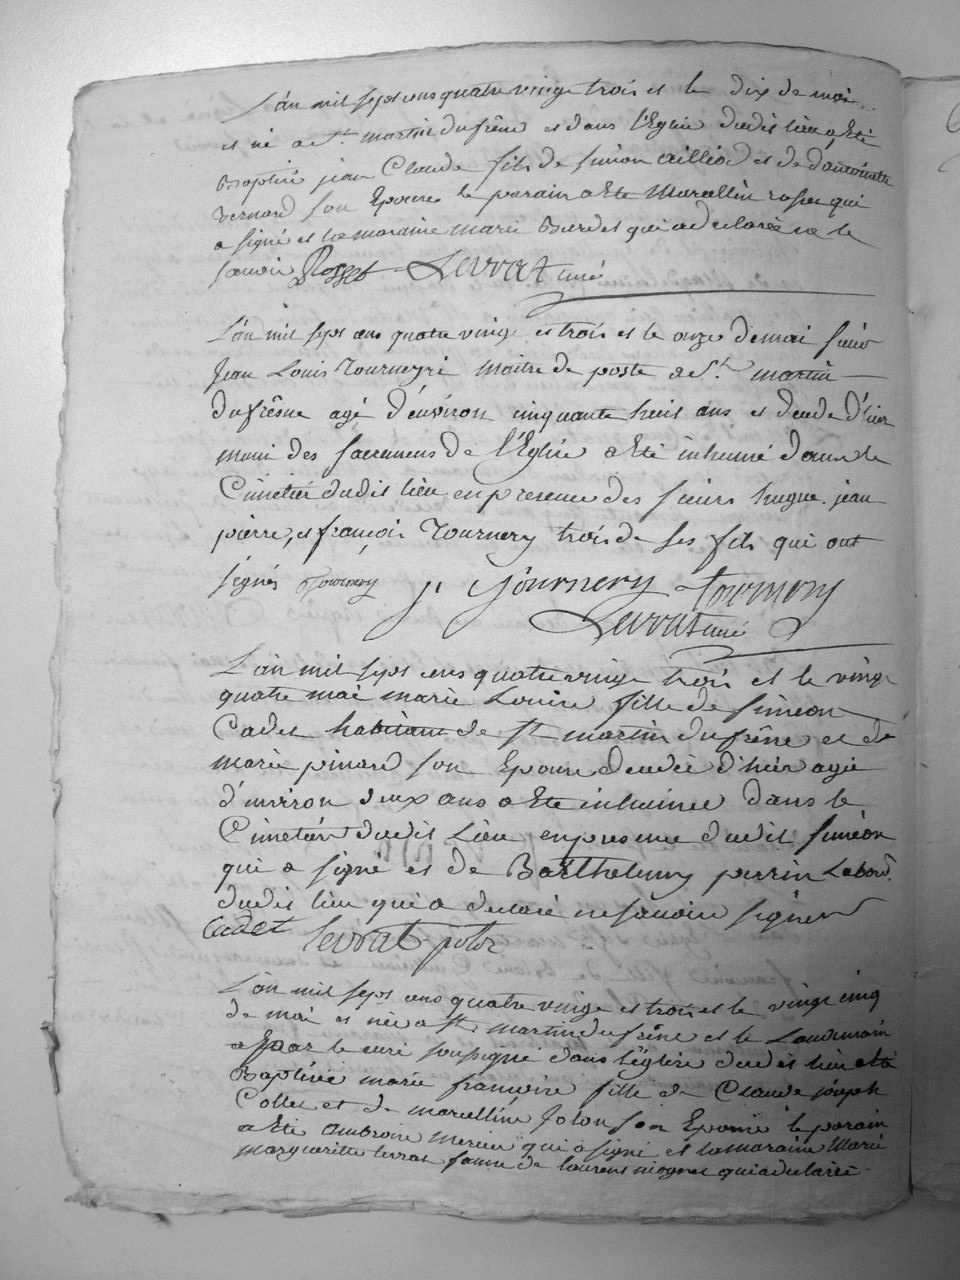 L'an mil sept cens quatre vingt trois et le dix de mai
et né a St martin dufrêne et dans l'Eglise dudit lieu a Eté
Baptisé jean Claude fils de simeon et de d'antoinette
Bernard son Epouse le parain a Eté Marcellin rosset qui
a signé et la maraine marie qui a declarée ne le
savoir Rosset Levrat curé
L'an mil sept cens quatre vingt et trois et le onze de mai sieur
Jean Louis Tourneyri maitre de poste a St martin
dufrêne agé d'environ cinquante huit ans et decedé d'hier
muni des sacremens de l'Eglise a Eté inhumé dans le
Cimetier dudit lieu en presence des sieurs hugue, jean
pierre, et françois Tournery trois de ses fils qui ont
signés Tournery j. Tournery tournery
Levrat curé
L'an mil sept cens quatre vingt trois et le vingt
quatre mai marie Louise fille de simeon
Cadet habitant de St martin dufrêne et de
marie pinard son Epouse decedée d'hier agée
d'environ deux ans a Eté inhumée dans le
Cimetier dudit Lieu en presence dudit simeon
qui a signé et de Barthelemy perrin Labour.
dudit lieu qui a declaré ne savoir signer
Cadet levrat
L'an mil sept cens quatre vingt et trois et le vingt cinq
de mai et née a St martin dufrêne et le Landemain
a par le curé soussigné dans l'église dudit lieu eté
Baptisée marie françoise fille de Claude joseph
Collet et de marcelline Jolon son Epouse le parain
a Eté ambroise mercier qui a signé et la maraine Marie
margueritte levrat fame de laurens qui a declarée